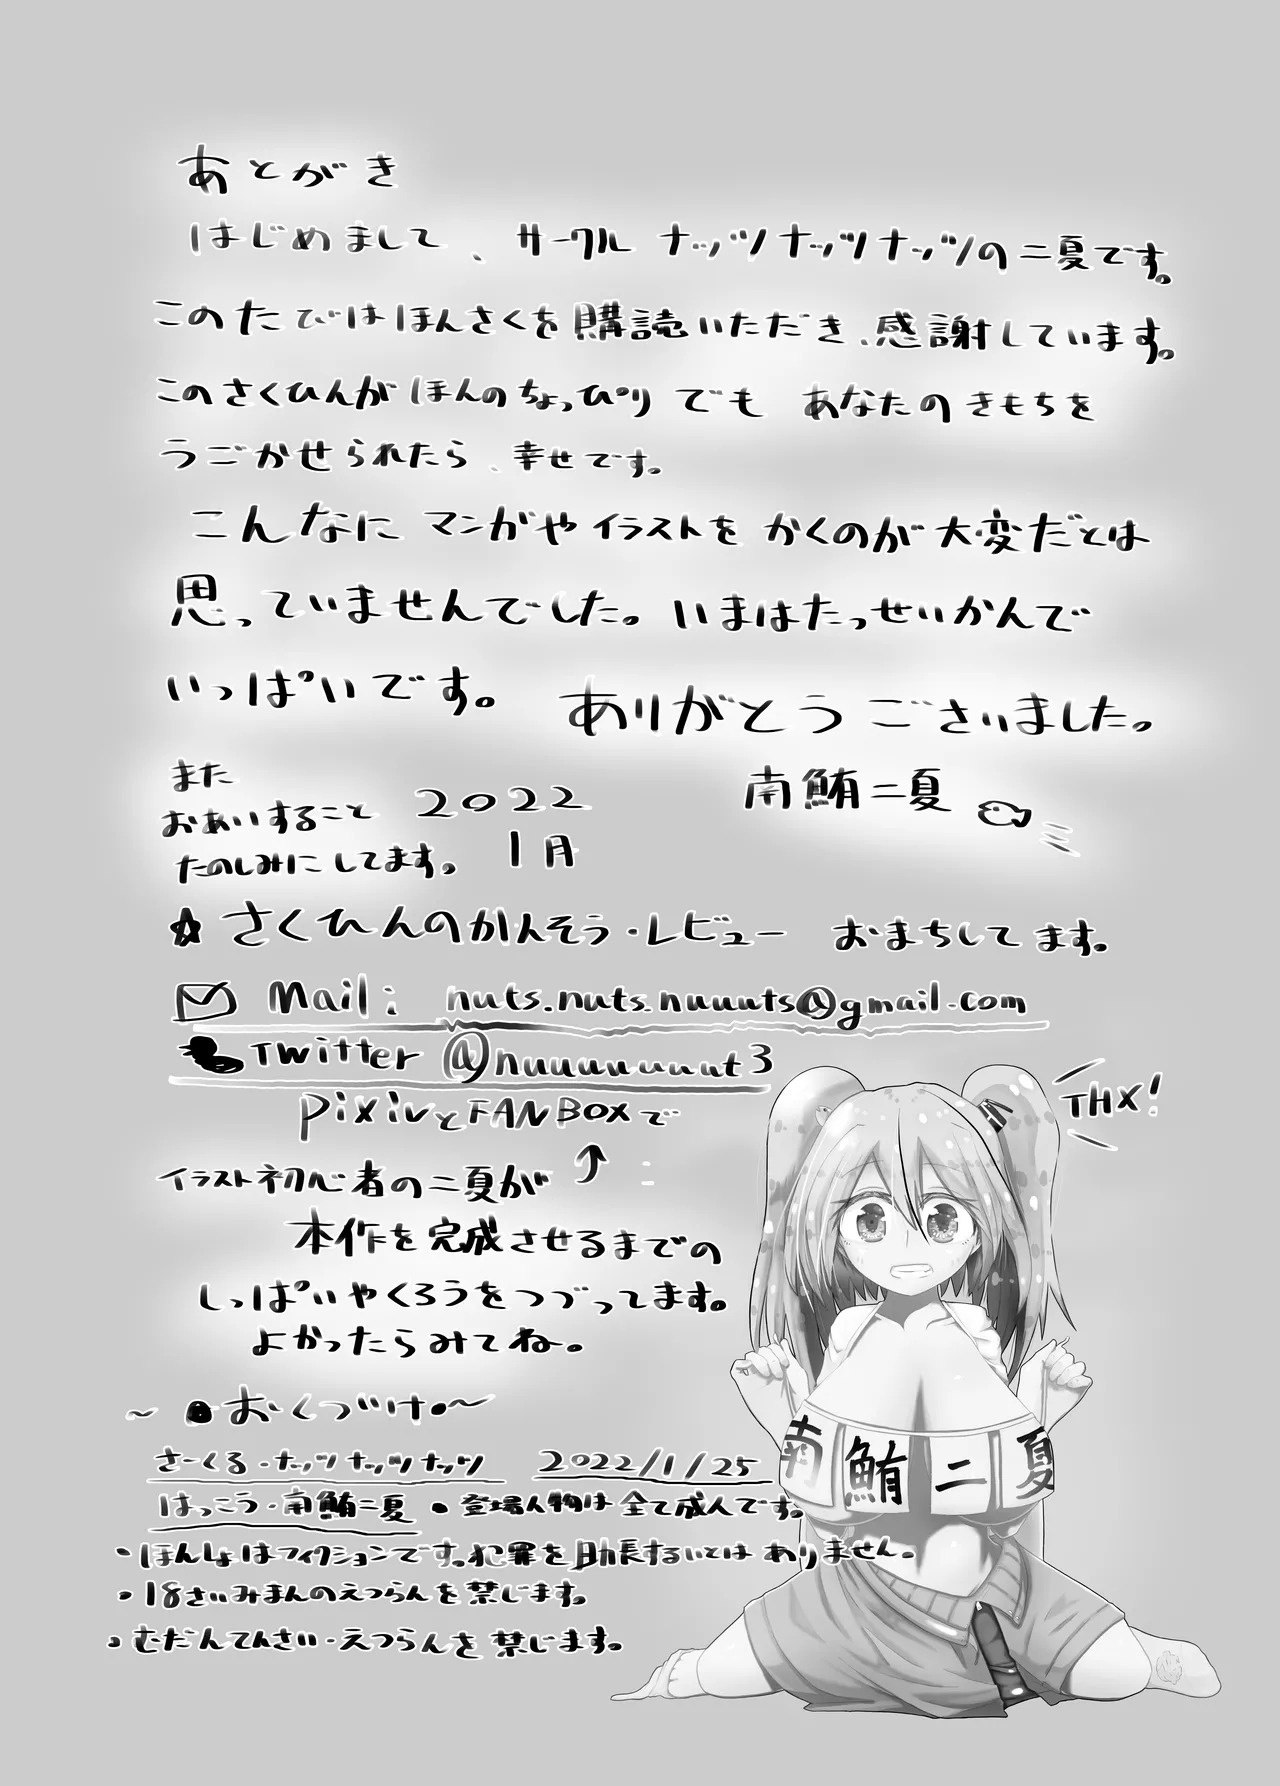 あとがき
はじめまして、サークル ナッツナッツナッツの二夏です。
このたびはほんさくを購読いただき、感謝しています。
このさくひんがほんのちょっぴりでも あなたのきもちを
うごかせられたら、幸せです。
こんなに マンガやイラストを かくのが大変だとは
思っていませんでした。いまはたっせいかんで
いっぱいです。 ありがとうございました。
また
おあいすること
たのしみにしてます。
2022
1月
南鮪二夏
☆さくひんのかんそう・レビュー おまちしてます。
Mail: nuts.nuts.nuuuts@gmail.com
Twitter @nuuuuuuut3
pixivとFANBOXで
イラスト初心者の二夏が
本作を完成させるまでの
しっぱいやくろうをつづってます。
よかったらみてね。
THX!
南鮪二夏
~●おくづけ●~
さーくる・ナッツナッツナッツ 2022/1/25
はっこう・南鮪二夏 ●登場人物は全て成人です。
・ほんしょはフィクションです。犯罪を助長するいとはありません。
・18さいみまんのえつらんを禁じます。
・むだんてんさい・えつらんを禁じます。